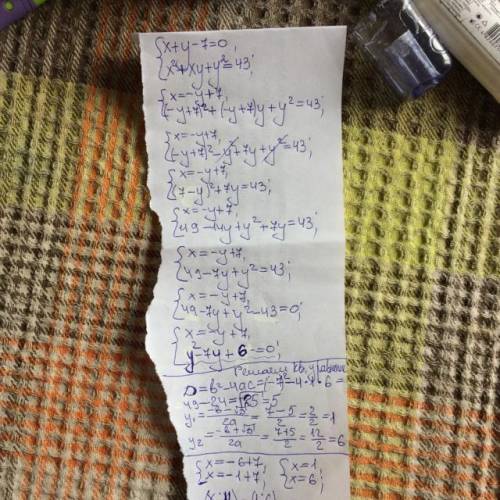 x+y-7=0;
x²+xy+y²=43;
x=-y+7;
(-y+7)²+(-y+7)y+y²=43;
x=-y+7,
(-y+7)²-y²+7y+y²=43;
x=-y+7,
(7-y)²+7y=43;
x=-y+7,
49-14y+y²+7y=43;
x=-y+7,
49-7y+y²=43;
x=-y+7,
49-7y+y²-43=0;
x=-y+7,
y²-7y+6=0;
Решаем кв. уравнение
D=b²-4ac=(-7)²-4·1·6=
49-24=√25=5
y₁=(-b-√D)/2a=(7-5)/2=2/2=1
y₂=(-b+√D)/2a=(7+5)/2=12/2=6
x=-6+7, x=1,
x=-1+7; x=6;